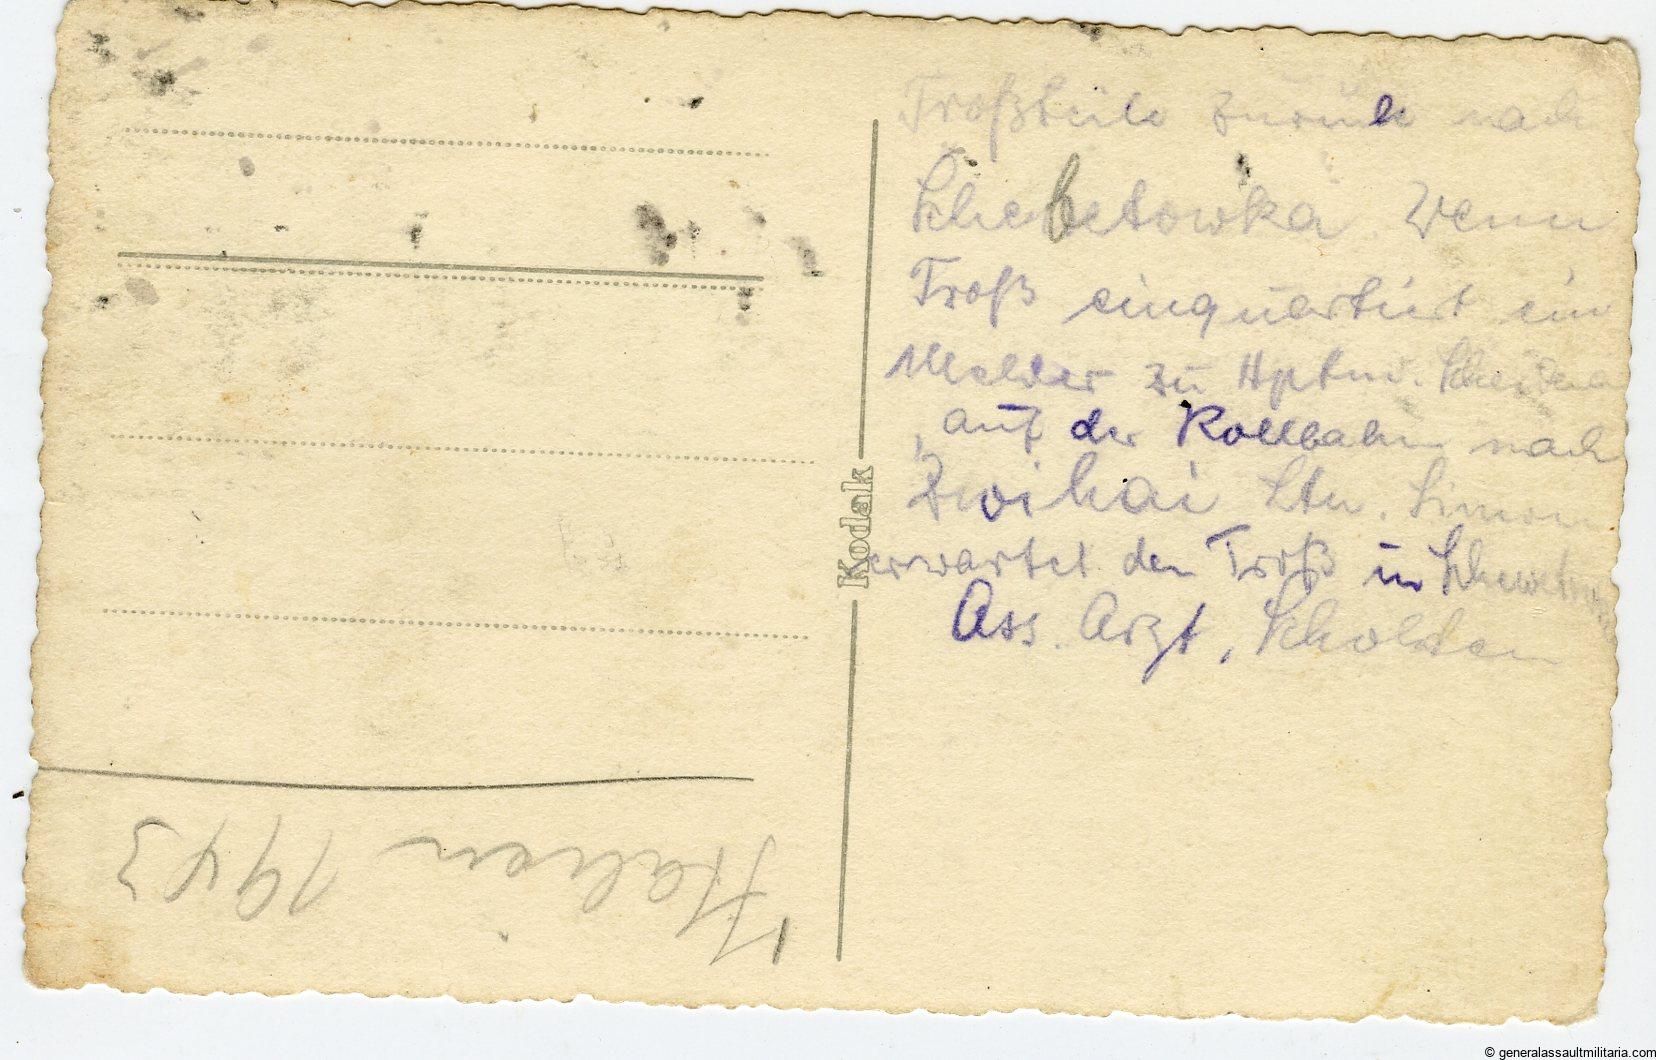 Troßteile zurück nach
Schebetowka. Wenn
Troß einquartiert ein
Melder zu Hptm.
, auf der Rollbahn nach
Ltn. Simon
erwartet den Troß in
Ass. Arzt, Scholten
Kodak
Italien 1943
© generalassaultmilitaria.com